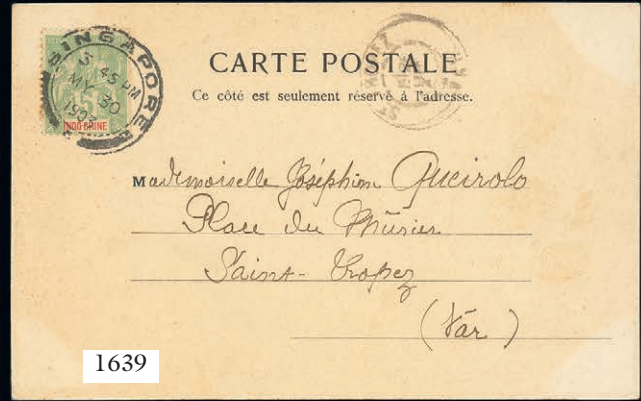 SINGAPORE
3 45 PM
MY 30
1903
5
INDO-CHINE
CARTE POSTALE
Ce côté est seulement réservé à l'adresse.
Mademoiselle Joséphine Queirolo
Place du Mûrier
Saint-Tropez
(Var)
1639